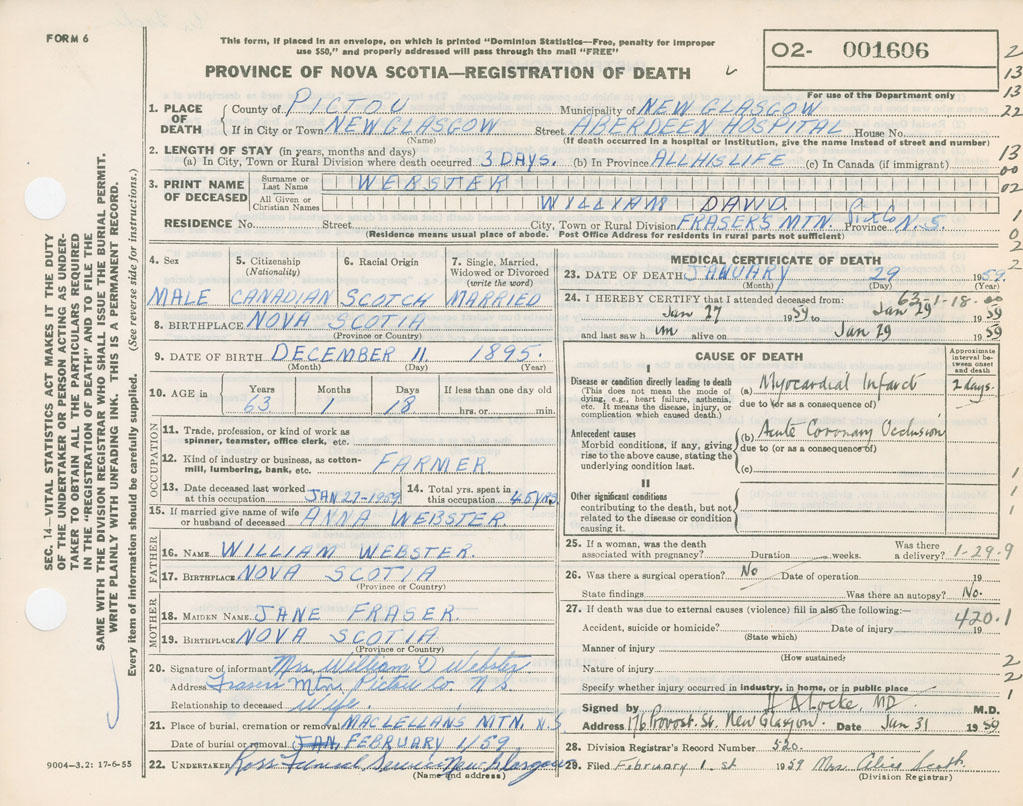 FORM 6
This form, if placed in an envelope, on which is printed "Dominion Statistics—Free, penalty for improper
use $50," and properly addressed will pass through the mail "FREE"
O2- 001606
For use of the Department only
PROVINCE OF NOVA SCOTIA—REGISTRATION OF DEATH
2
13
13
22
13
00
02
1
0
2
2
1. PLACE OF DEATH
County of PICTOU Municipality of NEW GLASGOW
If in City or Town NEW GLASGOW Street ABERDEEN HOSPITAL House No.
(Name) (If death occurred in a hospital or institution, give the name instead of street and number)
2. LENGTH OF STAY (in years, months and days)
(a) In City, Town or Rural Division where death occurred 3 DAYS. (b) In Province ALL HIS LIFE (c) In Canada (if immigrant)
3. PRINT NAME OF DECEASED
Surname or Last Name WEBSTER
All Given or Christian Names WILLIAM DAVID
RESIDENCE No. Street City, Town or Rural Division FRASER'S MTN. Pictou Province N.S.
(Residence means usual place of abode. Post Office Address for residents in rural parts not sufficient)
4. Sex 5. Citizenship (Nationality) 6. Racial Origin 7. Single, Married, Widowed or Divorced (write the word)
MALE CANADIAN SCOTCH MARRIED
8. BIRTHPLACE NOVA SCOTIA
(Province or Country)
9. DATE OF BIRTH DECEMBER 11 1895.
(Month) (Day) (Year)
10. AGE in Years Months Days If less than one day old
63 1 18 hrs. or min.
OCCUPATION
11. Trade, profession, or kind of work as
spinner, teamster, office clerk, etc.
12. Kind of industry or business, as cotton-
mill, lumbering, bank, etc. FARMER
13. Date deceased last worked at this occupation JAN 27-1959 14. Total yrs. spent in this occupation 45 YRS.
15. If married give name of wife
or husband of deceased ANNA WEBSTER.
FATHER
16. NAME WILLIAM WEBSTER.
17. BIRTHPLACE NOVA SCOTIA
(Province or Country)
MOTHER
18. MAIDEN NAME JANE FRASER.
19. BIRTHPLACE NOVA SCOTIA
(Province or Country)
20. Signature of informant Mrs. William D Webster
Address Frasers Mtn. Pictou Co. N S.
Relationship to deceased Wife.
21. Place of burial, cremation or removal MACLELLANS MTN. N.S
Date of burial or removal JAN. FEBRUARY 1/59
22. UNDERTAKER Ross Funeral Service New Glasgow
(Name and address)
MEDICAL CERTIFICATE OF DEATH
23. DATE OF DEATH JANUARY 29 1959.
(Month) (Day) (Year)
63-1-18.00
24. I HEREBY CERTIFY that I attended deceased from:
Jan 27 1959 to Jan 29 1959
and last saw him alive on Jan 29 1959
CAUSE OF DEATH
Approximate interval between onset and death
I
Disease or condition directly leading to death
(This does not mean the mode of
dying, e.g., heart failure, asthenia,
etc. It means the disease, injury, or
complication which caused death.)
(a) Myocardial Infarct 2 days.
due to (or as a consequence of)
Antecedent causes
Morbid conditions, if any, giving
rise to the above cause, stating the
underlying condition last.
(b) Acute Coronary Occlusion
due to (or as a consequence of)
(c)
II
Other significant conditions
contributing to the death, but not
related to the disease or condition
causing it.
1
1
1
25. If a woman, was the death associated with pregnancy? Duration weeks. Was there a delivery?
1-29.9
26. Was there a surgical operation? No Date of operation 19
State findings Was there an autopsy? No.
27. If death was due to external causes (violence) fill in also the following:—
420.1
Accident, suicide or homicide? Date of injury 19
(State which)
Manner of injury
(How sustained)
Nature of injury
2
2
1
Specify whether injury occurred in industry, in home, or in public place
Signed by H A Locke, MD M.D.
Address 176 Provost St. New Glasgow. Date Jan 31 1959
28. Division Registrar's Record Number 520.
29. Filed February 1st 1959 Mrs. Alice Scott
(Division Registrar)
SEC. 14—VITAL STATISTICS ACT MAKES IT THE DUTY
OF THE UNDERTAKER OR PERSON ACTING AS UNDER-
TAKER TO OBTAIN ALL THE PARTICULARS REQUIRED
IN THE "REGISTRATION OF DEATH" AND TO FILE THE
SAME WITH THE DIVISION REGISTRAR WHO SHALL ISSUE THE BURIAL PERMIT.
WRITE PLAINLY WITH UNFADING INK. THIS IS A PERMANENT RECORD.
Every item of information should be carefully supplied. (See reverse side for instructions.)
9004-3.2: 17-6-55